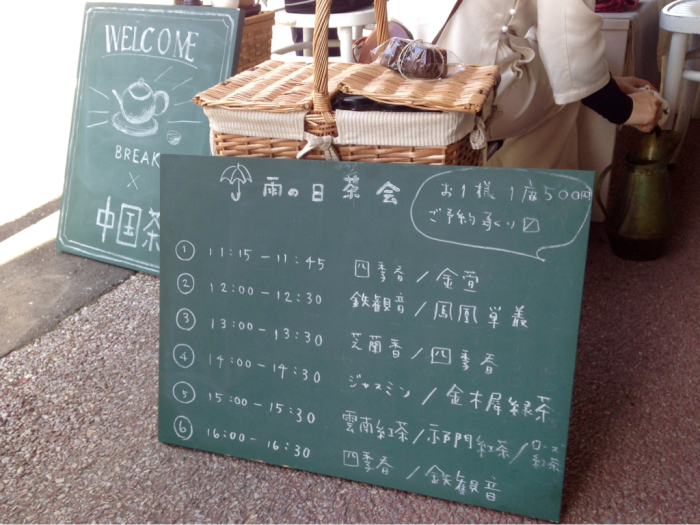 WELCOME
BREAK
×
中国茶
雨の日 茶会
お1様 1席500円
ご予約承くり〼
① 11:15 - 11:45 四季香 / 金萱
② 12:00 - 12:30 鉄観音 / 鳳凰単叢
③ 13:00 - 13:30 芝蘭香 / 四季香
④ 14:00 - 14:30 ジャスミン / 金木犀緑茶
⑤ 15:00 - 15:30 雲南紅茶 / 祁門紅茶 / ローズ紅茶
⑥ 16:00 - 16:30 四季香 / 鉄観音